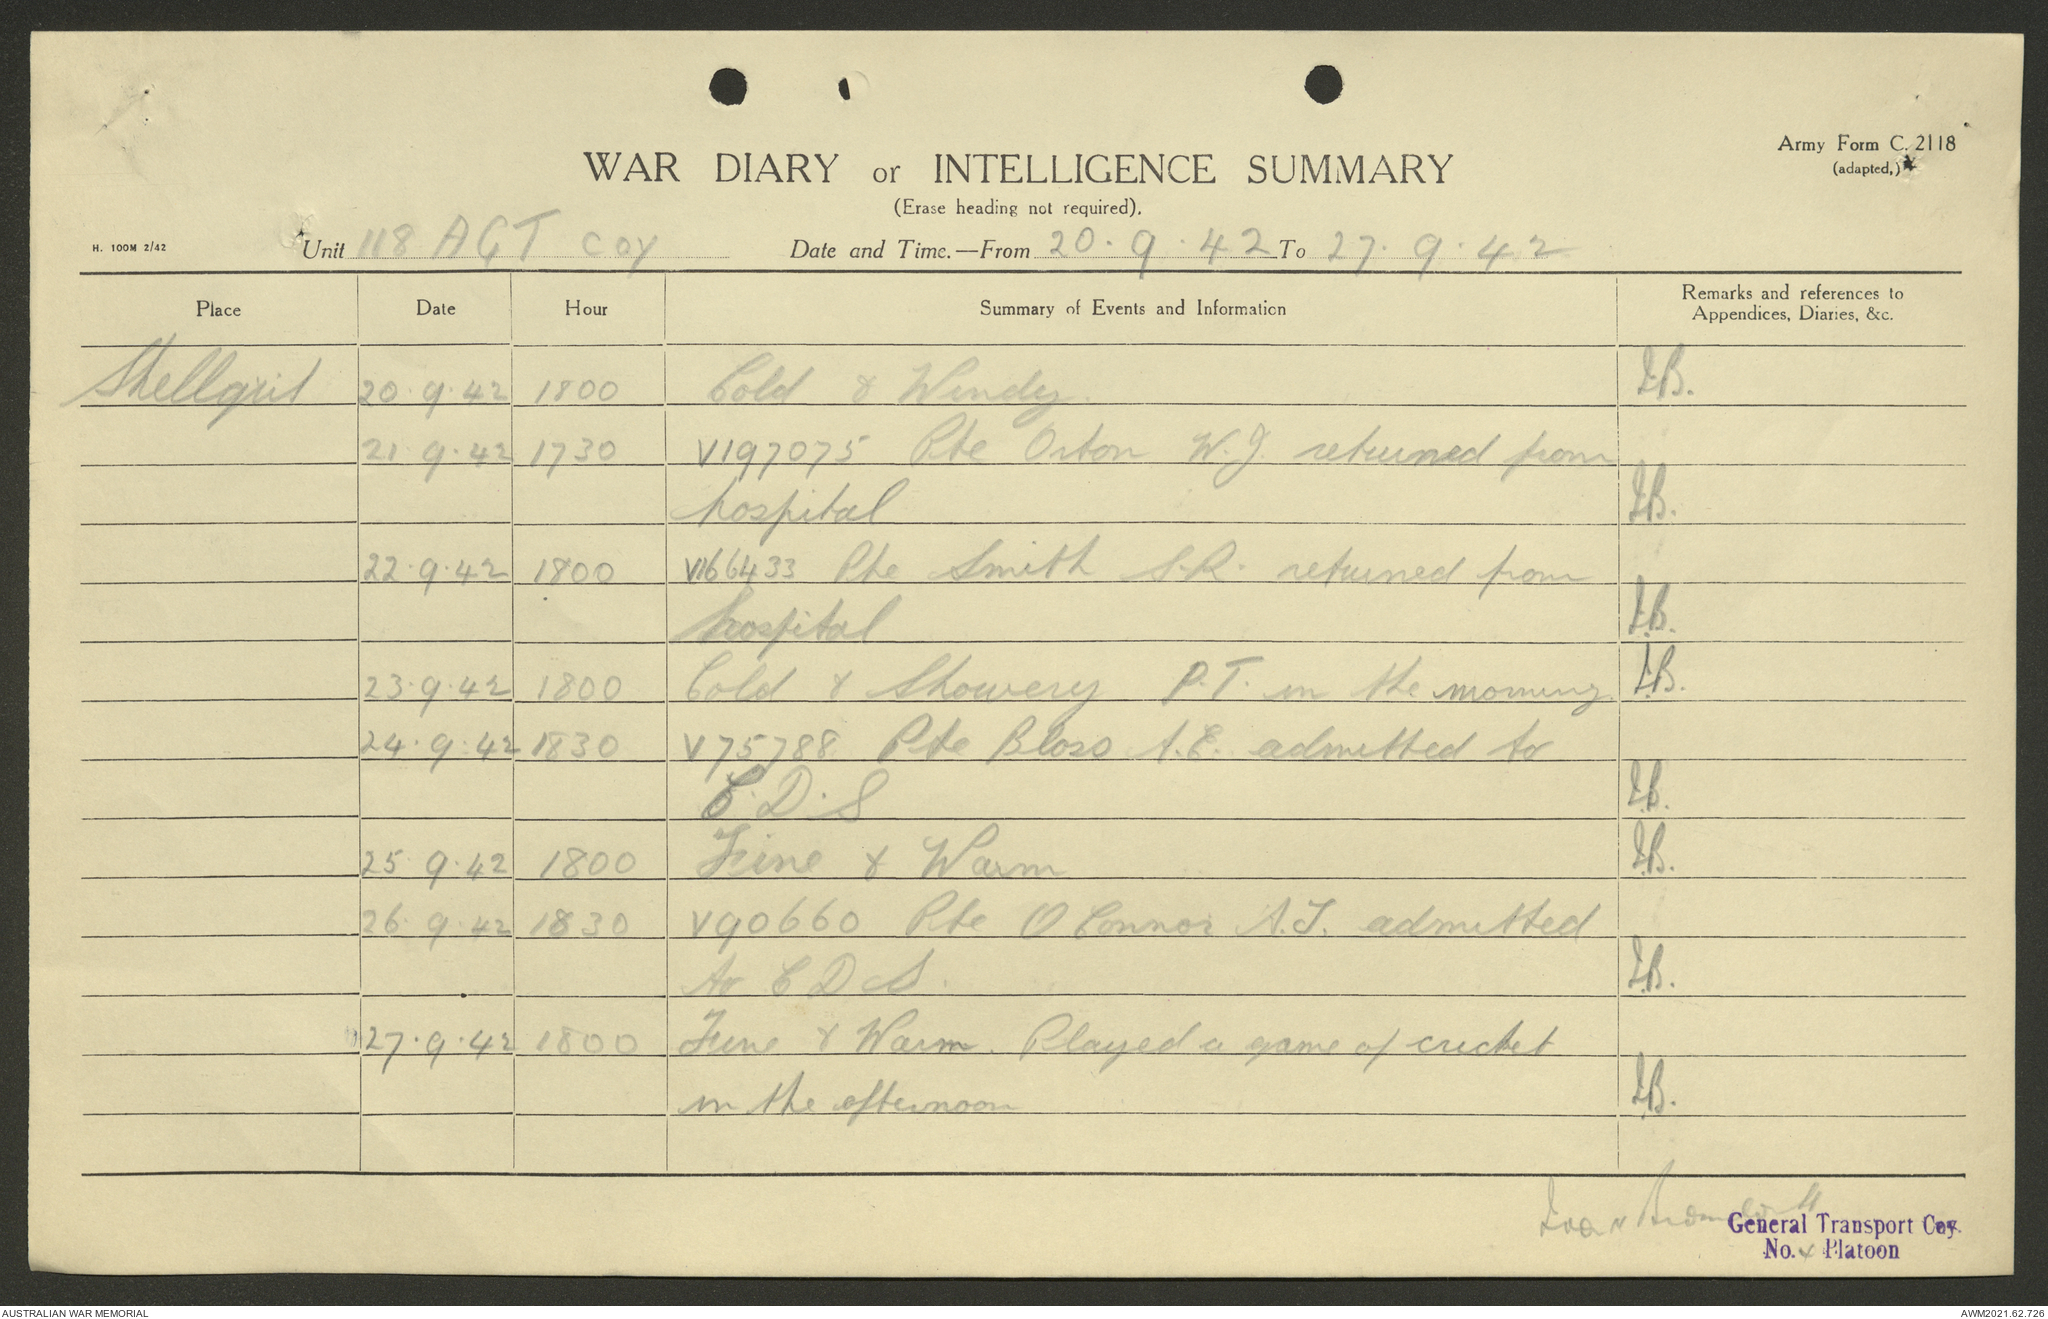 Army Form C. 2118
(adapted,)
WAR DIARY or INTELLIGENCE SUMMARY
(Erase heading not required).
H. 100M 2/42
Unit 118 AGT Coy Date and Time.—From 20.9.42 To 27.9.42
Place Date Hour Summary of Events and Information Remarks and references to
Appendices, Diaries, &c.
Shellgrit 20.9.42 1800 Cold & Windy. I.B.
21.9.42 1730 V197075 Pte Orton W.J. returned from
hospital I.B.
22.9.42 1800 V166433 Pte Smith S.R. returned from
hospital I.B.
23.9.42 1800 Cold & Showery P.T. in the morning. I.B.
24.9.42 1830 V75788 Pte Bloss A.E. admitted to
C.D.S I.B.
25.9.42 1800 Fine & Warm I.B.
26.9.42 1830 V90660 Pte O Connor A.J. admitted
to C D S. I.B.
27.9.42 1800 Fine & Warm. Played a game of cricket
in the afternoon I.B.
General Transport Coy.
No. 4 Platoon
AUSTRALIAN WAR MEMORIAL AWM2021.62.726